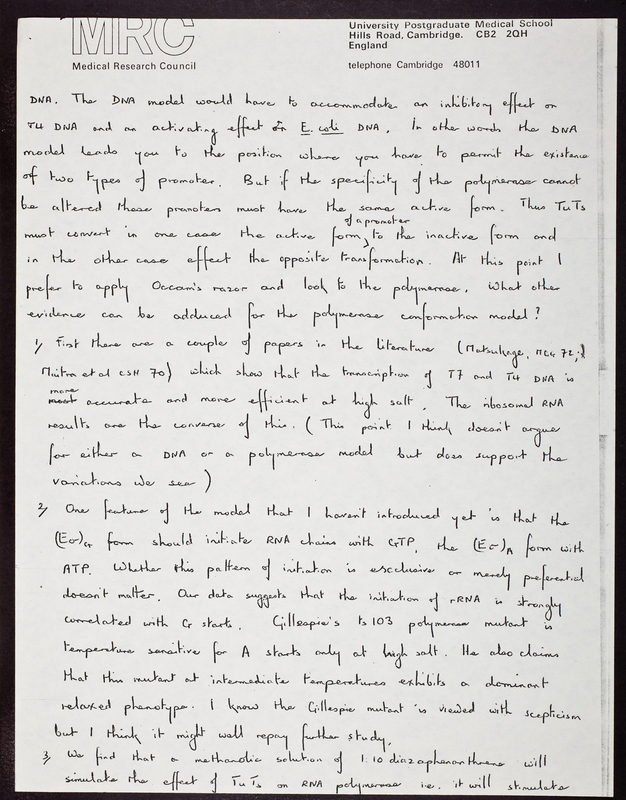 MRC
Medical Research Council
University Postgraduate Medical School
Hills Road, Cambridge. CB2 2QH
England
telephone Cambridge 48011
DNA. The DNA model would have to accommodate an inhibitory effect on
T4 DNA and an activating effect on E. coli DNA. In other words the DNA
model leads you to the position where you have to permit the existence
of two types of promoter. But if the specificity of the polymerase cannot
be altered these promoters must have the same active form. Thus TuTs
must convert in one case the active form of a promoter to the inactive form and
in the other case effect the opposite transformation. At this point I
prefer to apply Occam's razor and look to the polymerase. What other
evidence can be adduced for the polymerase conformation model?
1/ First there are a couple of papers in the literature (Matsukage, MGG 72;
Maitra et al CSH 70) which show that the transcription of T7 and T4 DNA is
more accurate and more efficient at high salt. The ribosomal RNA
results are the converse of this. (This point I think doesn't argue
for either a DNA or a polymerase model but does support the
variations we see)
2/ One feature of the model that I haven't introduced yet is that the
(Eσ)G form should initiate RNA chains with GTP, the (Eσ)A form with
ATP. Whether this pattern of initiation is exclusive or merely preferential
doesn't matter. Our data suggests that the initiation of rRNA is strongly
correlated with G starts. Gillespie's ts 103 polymerase mutant is
temperature sensitive for A starts only at high salt. He also claims
that this mutant at intermediate temperatures exhibits a dominant
relaxed phenotype. I know the Gillespie mutant is viewed with scepticism
but I think it might well repay further study.
3/ We find that a methanolic solution of 1.10 diazaphenanthrene will
simulate the effect of TuTs on RNA polymerase i.e. it will stimulate